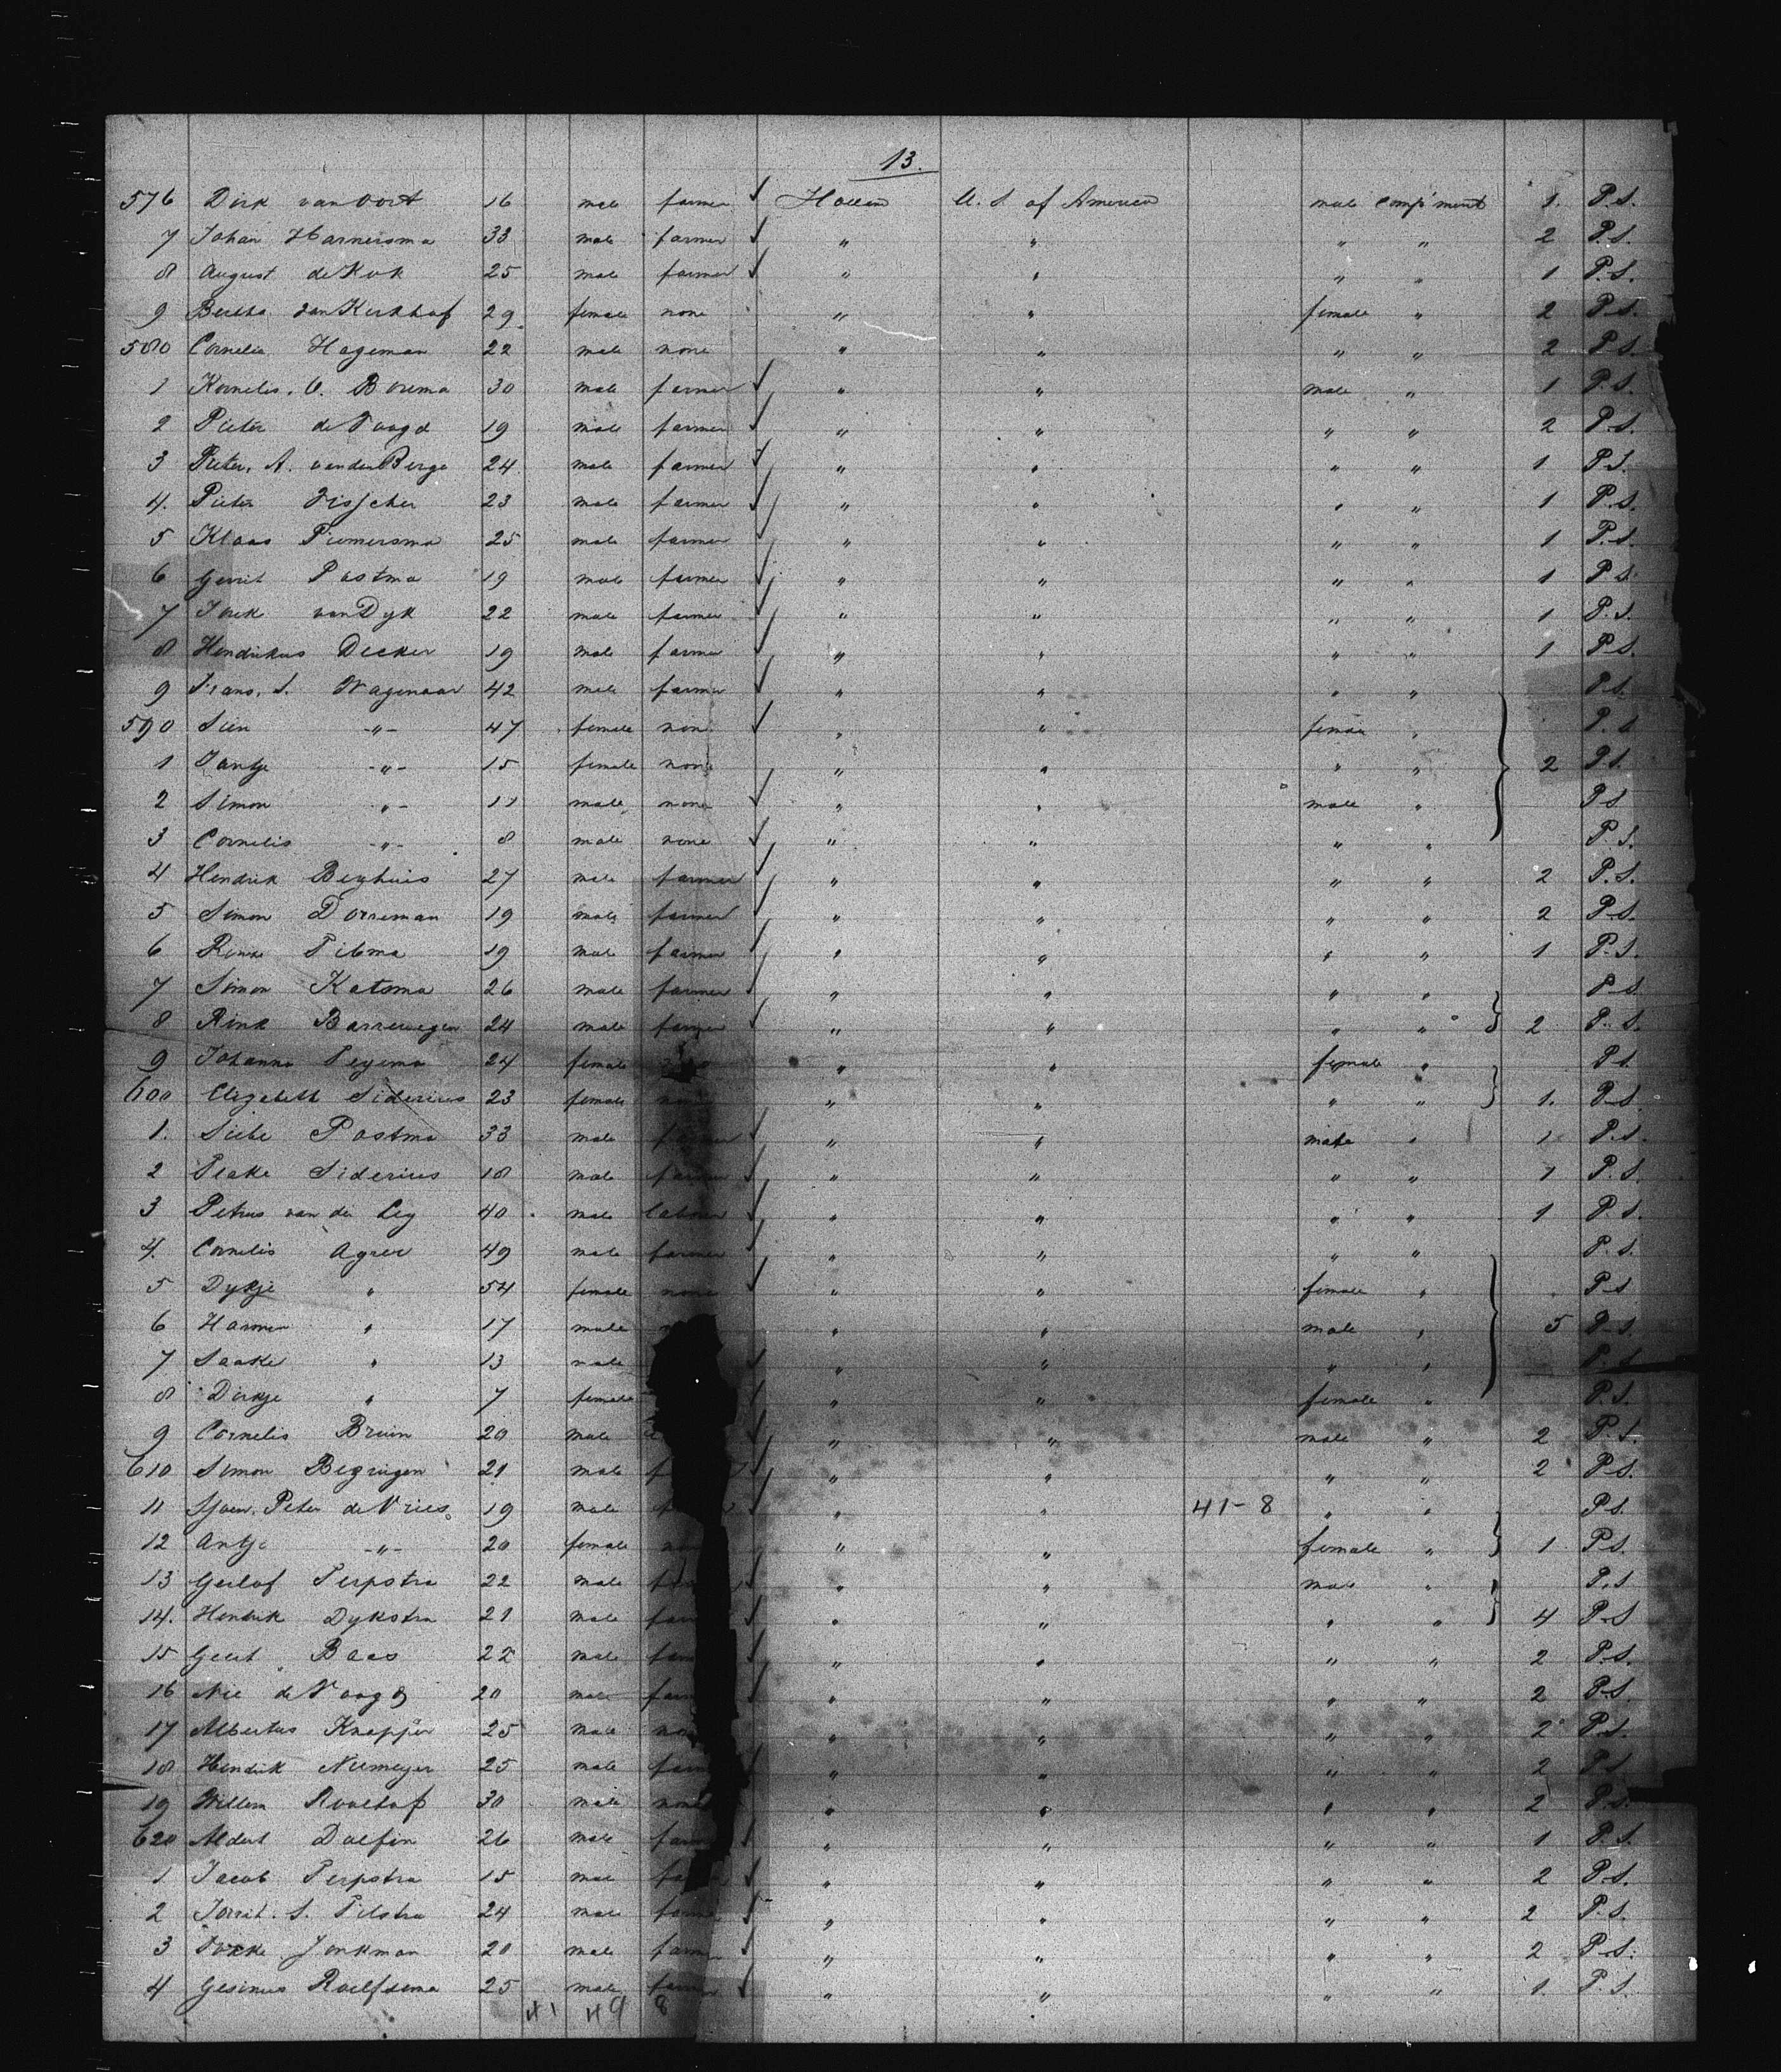 13.
576 Dirk van Oort 16 male farmer ✓ Holland U. S. of America male comp'ment 1. P.S.
7 Johan Harnersma 33 male farmer ✓ " " " " 2 P.S.
8 August de Kok 25 male farmer ✓ " " " " 1 P.S.
9 Bertha van Kerkhof 29 female none " " female " 2 P.S.
580 Cornelia Hageman 22 male none " " " " 2 P.S.
1 Kornelis. O. Bouma 30 male farmer ✓ " " male " 1 P.S.
2 Pieter de Voogd 19 male farmer ✓ " " " " 2 P.S.
3 Pieter. A. van den Berge 24 male farmer ✓ " " " " 1 P.S.
4. Pieter Visscher 23 male farmer ✓ " " " " 1 P.S.
5 Klaas Piemersma 25 male farmer ✓ " " " " 1 P.S.
6 Gerrit Postma 19 male farmer ✓ " " " " 1 P.S.
7 van Dyk 22 male farmer ✓ " " " " 1 P.S.
8 Hendrikus Decker 19 male farmer ✓ " " " " 1 P.S.
9 Frans. S. Wagenaar 42 male farmer ✓ " " " " P.S.
590 Sien -"- 47 female non ✓ " " female " P.S.
1 Jantje -"- 15 female none " " " " 2 P.S.
2 Simon -"- 11 male none ✓ " " male " P.S.
3 Cornelis -"- 8 male none ✓ " " " " P.S.
4 Hendrik Berghuis 27 male farmer ✓ " " " " 2 P.S.
5 Simon Dorreman 19 male farmer ✓ " " " " 2 P.S.
6 Rinse Tilma 19 male farmer ✓ " " " " 1 P.S.
7 Simon Katsma 26 male farmer ✓ " " " " P.S.
8 Rink Barrewegen 24 male farmer ✓ " " " " 2 P.S.
9 Johanna Feyema 24 female " " female " P.S.
600 Elizabeth Siderius 23 female non " " " " 1. P.S.
1. Siebe Postma 33 male farmer ✓ " " male " 1 P.S.
2 Feake Siderius 18 male farmer ✓ " " " " 1 P.S.
3 Petrus van der Ley 40 male labourer ✓ " " " " 1 P.S.
4. Cornelis Agter 49 male farmer ✓ " " " " P.S.
5 Dykje " 54 female none ✓ " " female " P.S.
6 Harmen " 17 male " " male " 5 P.S.
7 Saake " 13 male ✓ " " " " P.S.
8 Dirkje " 7 female ✓ " " female " P.S.
9 Cornelis Bruin 20 male ✓ " " male " 2 P.S.
610 Simon Bezuigen 21 male f ✓ " " " " 2 P.S.
11 Peter de Vries 19 male f ✓ " " 41-8 " " P.S.
12 Antje -"- 20 female non " " female " 1 P.S.
13 Gerlof Terpstra 22 male far ✓ " " male " P.S.
14. Hendrik Dykstra 21 male far ✓ " " " " 4 P.S.
15 Geert Baas 22 male far ✓ " " " " 2 P.S.
16 Nie de Voogd 20 male farm ✓ " " " " 2 P.S.
17 Albertus Knepper 25 male non " " " " 2 P.S.
18 Hendrik Niemeyer 25 male farm ✓ " " " " 2 P.S.
19 Willem Roelhof 30 male none " " " " 2 P.S.
620 Aldert Dolfin 26 male farm ✓ " " " " 1 P.S.
1. Jacob Terpstra 15 male fa ✓ " " " " 2 P.S.
2 Jorrit. S. Tilstra 24 male farme ✓ " " " " 2 P.S.
3 Fokke Jonkman 20 male farmer ✓ " " " " 2 P.S.
4 Gesinus Roelfsema 25 male farmer ✓ " " " " 1. P.S.
41 49 8